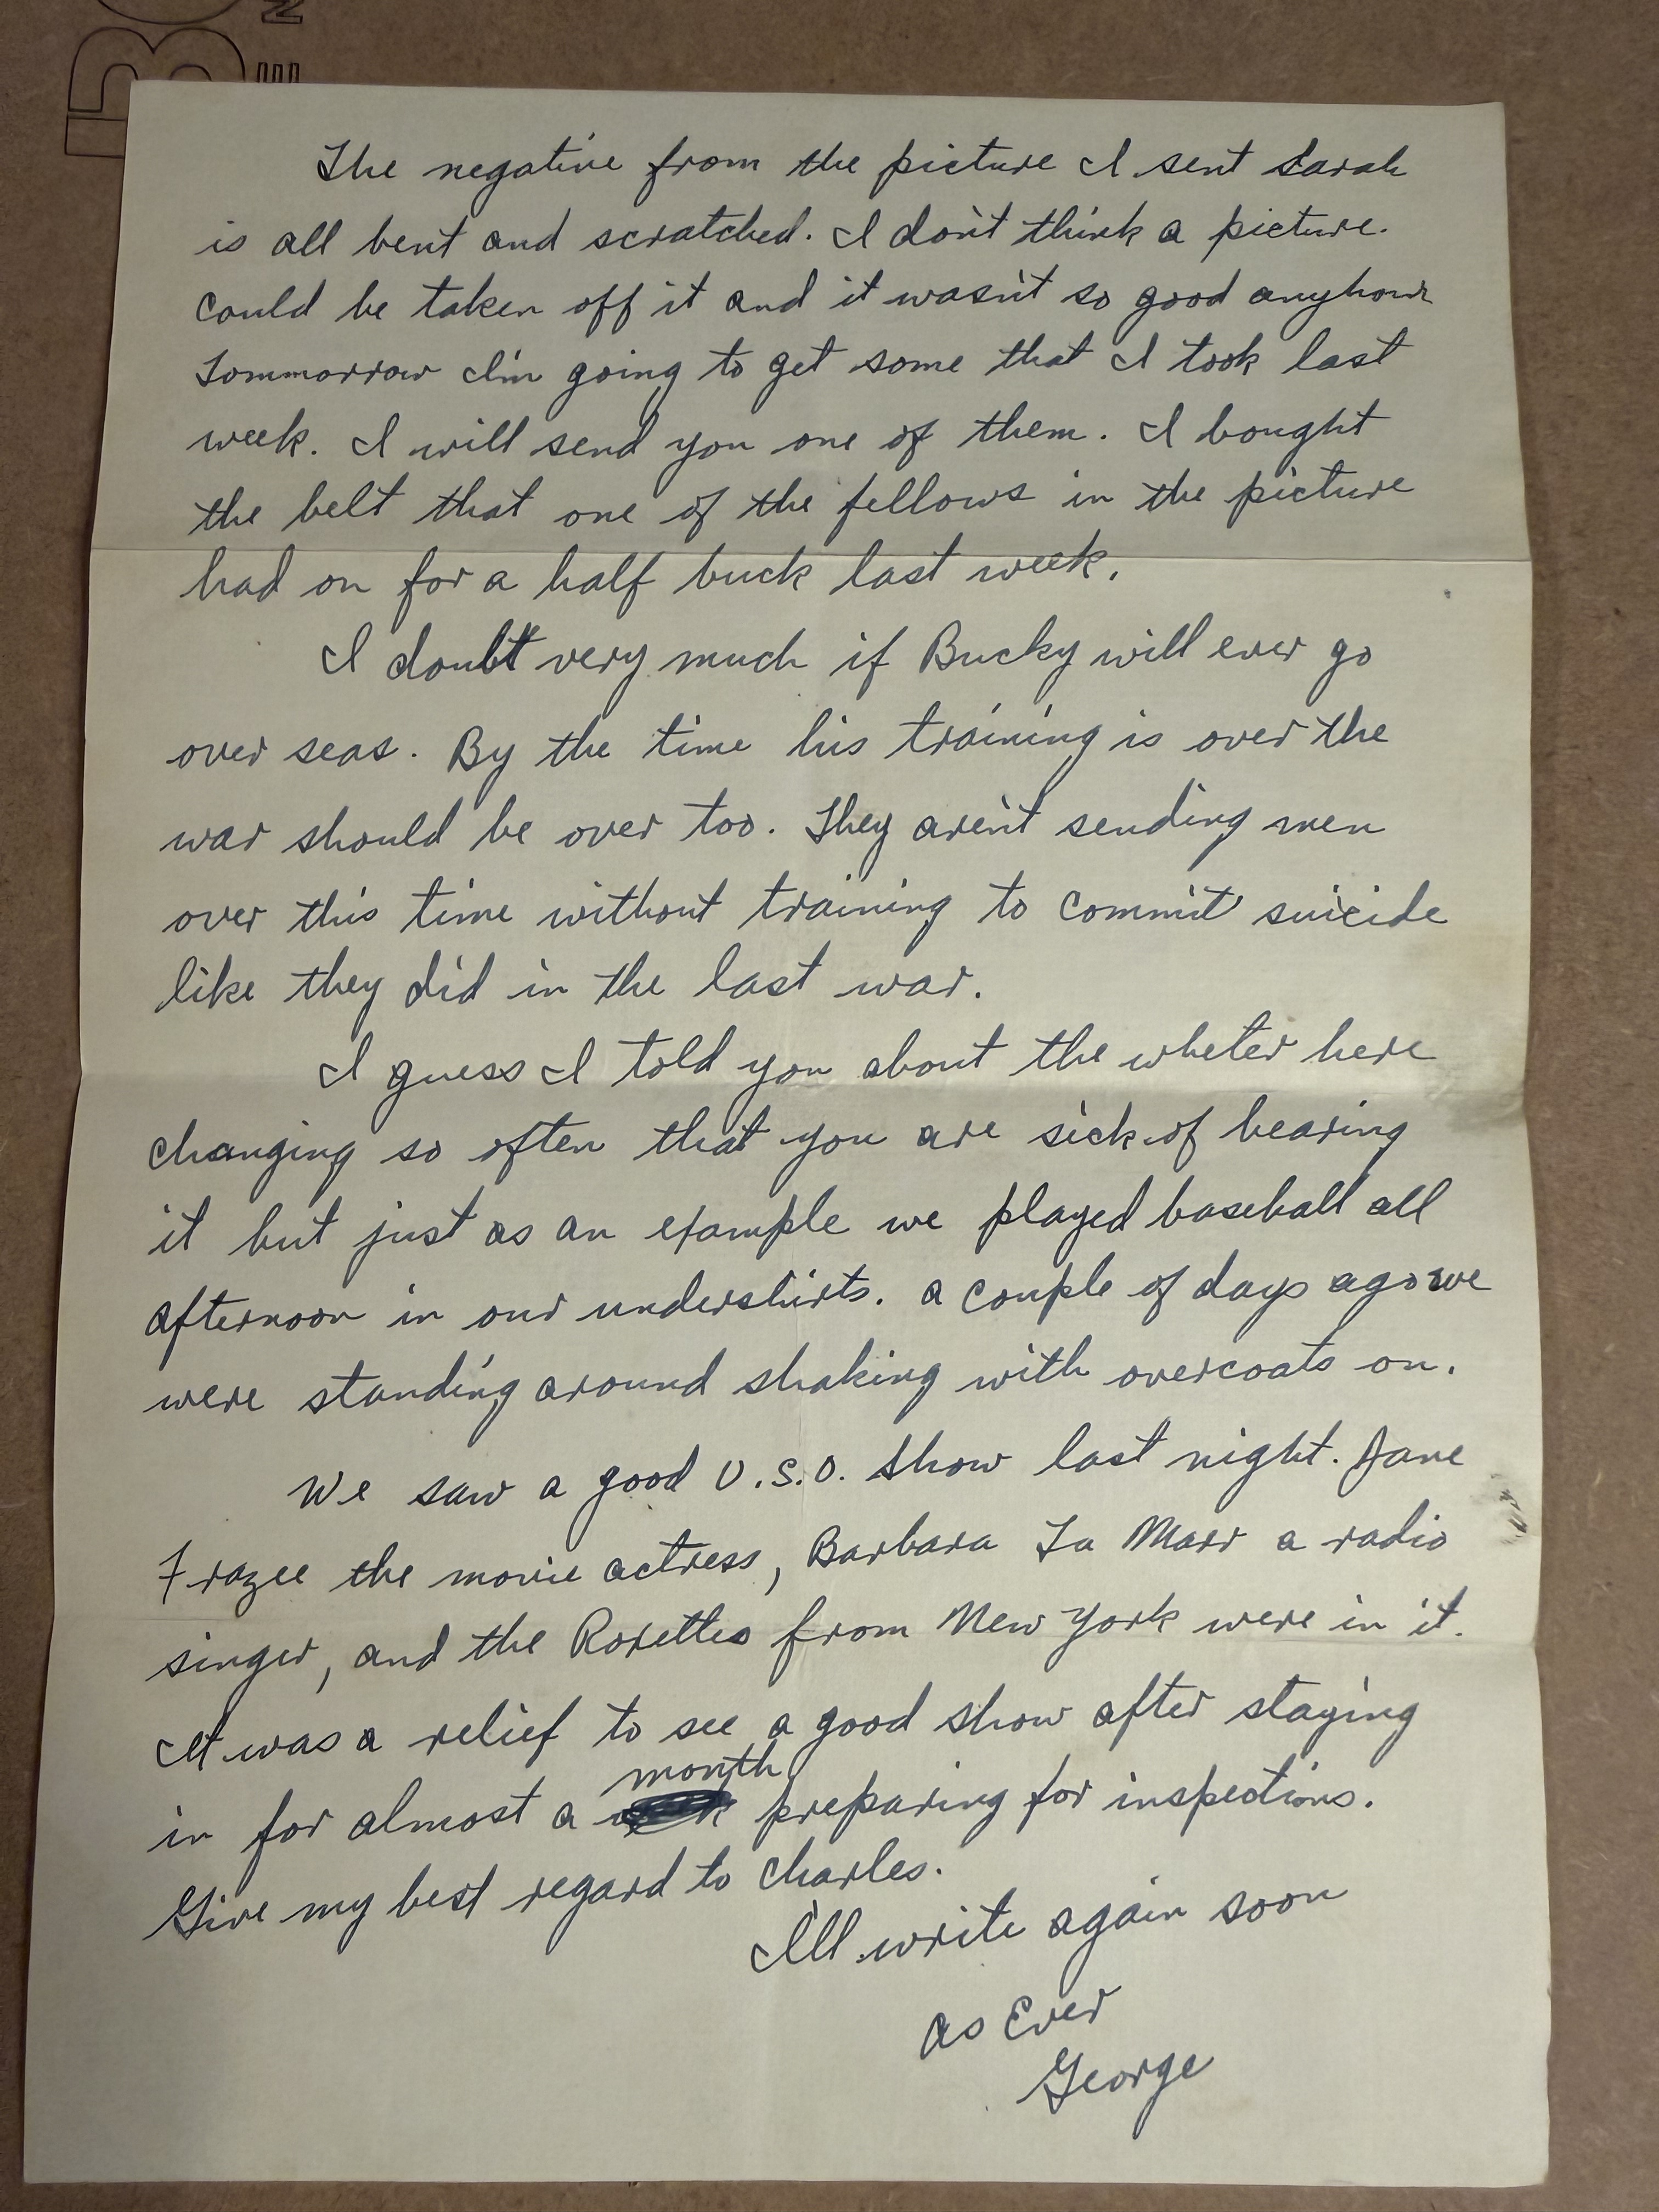 The negative from the picture I sent Sarah
is all bent and scratched. I don't think a picture.
could be taken off it and it wasn't so good anyhow
Tommorrow I'm going to get some that I took last
week. I will send you one of them. I bought
the belt that one of the fellows in the picture
had on for a half buck last week.
I doubt very much if Bucky will ever go
over seas. By the time his training is over the
war should be over too. They aren't sending men
over this time without training to commit suicide
like they did in the last war.
I guess I told you about the wheter here
changing so often that you are sick of hearing
it but just as an example we played baseball all
afternoon in our undershirts. a couple of days ago we
were standing around shaking with overcoats on.
We saw a good U.S.O. show last night. Jane
Frazee the movie actress, Barbara La Marr a radio
singer, and the Roxettes from New York were in it.
It was a relief to see a good show after staying
in for almost a month preparing for inspections.
Give my best regard to Charles.
I'll write again soon
As Ever
George